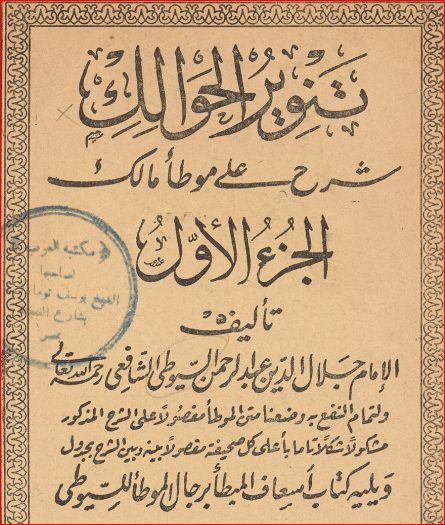 تَنوِيرُ الحَوَالِكِ
شرح على موطأ مالك
الجُزءُ الأوّلُ
تأليف
الإمام جَلال الدّين عبد الرحمن السّيوطى الشّافعى رحمه الله تعالى
ولتمام النفع به وضعنا متى الموطأ مفصُولًا على الشرح المذكور
مشكولًا شكلًا تاما بأعلى كل صحيفة مفصُولًا بينه وبين الشرح بجدول
وَيليه كتاب أسعاف المبطأ برجال الموطأ للسّيُوطى
مكتبة العرب
لصاحبها
الشيخ يوسف توما
بشارع
مصر